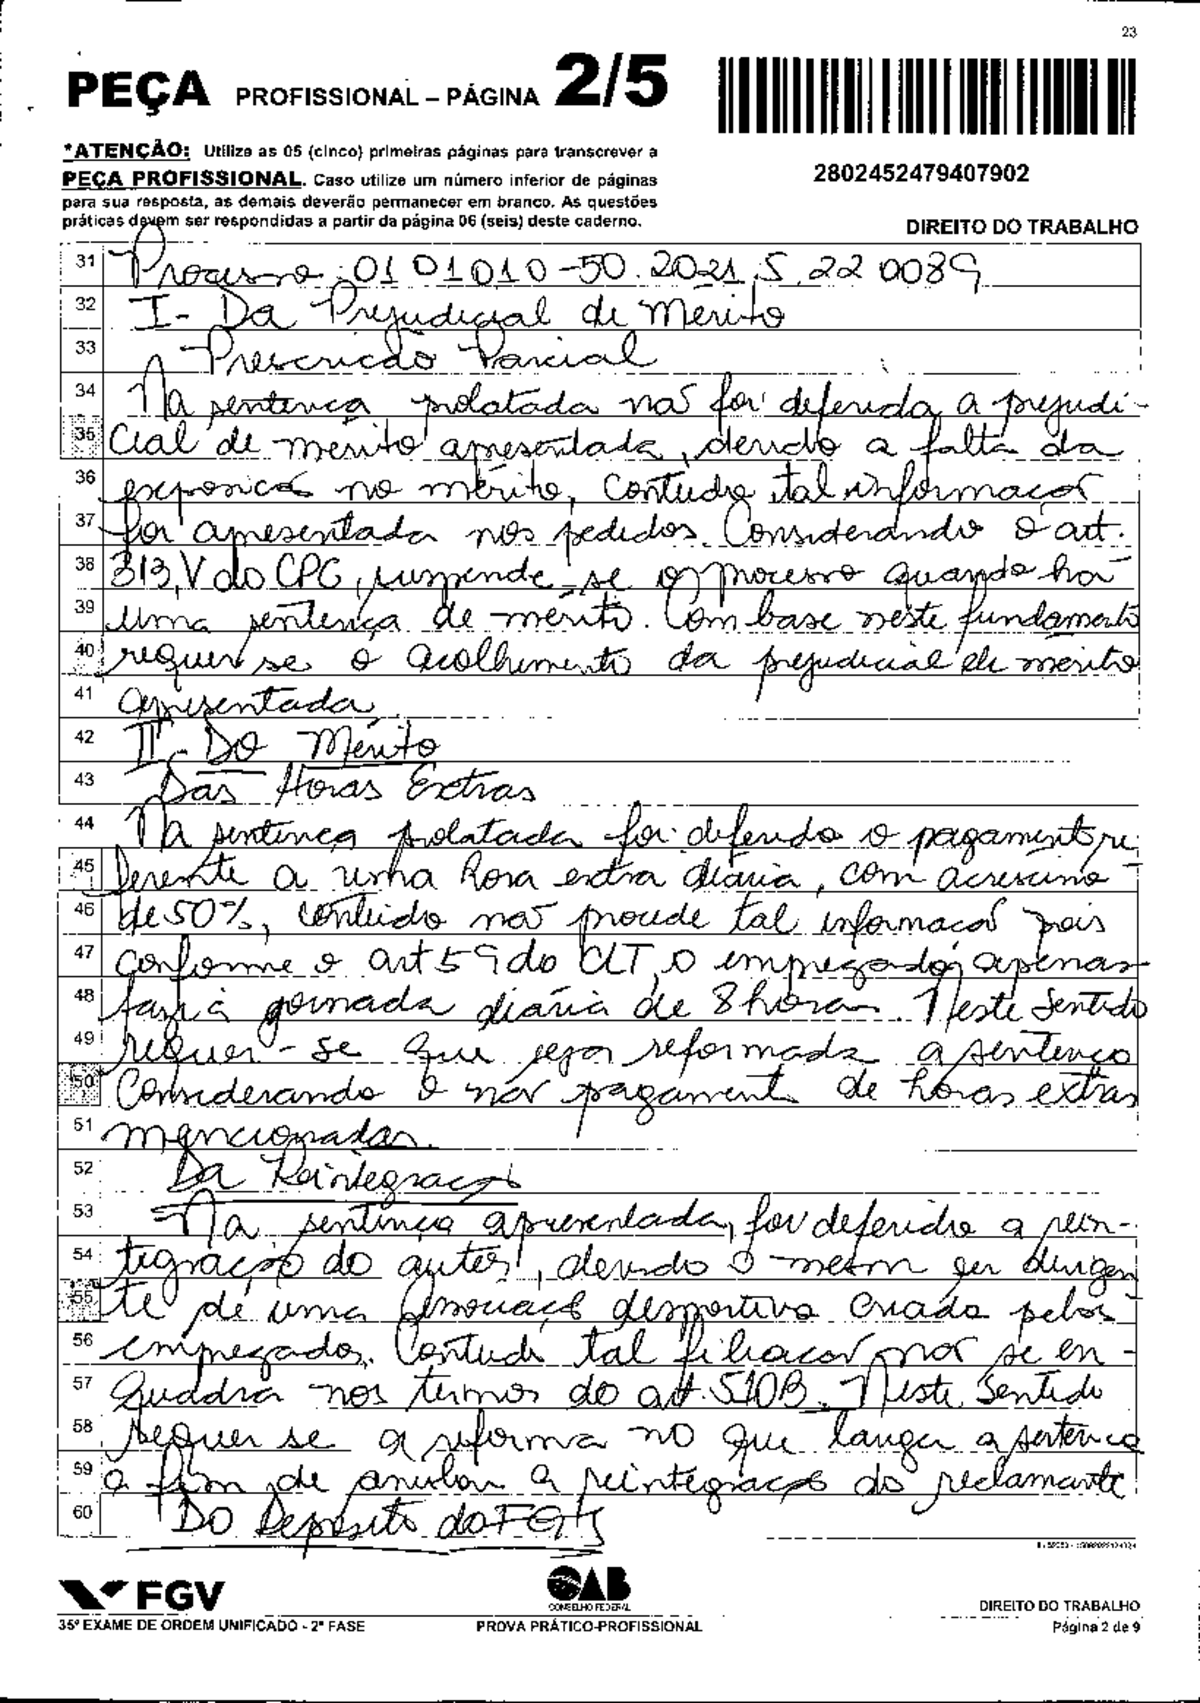 23
PEÇA PROFISSIONAL – PÁGINA 2/5
*ATENÇÃO: Utilize as 05 (cinco) primeiras páginas para transcrever a
PEÇA PROFISSIONAL. Caso utilize um número inferior de páginas
para sua resposta, as demais deverão permanecer em branco. As questões
práticas devem ser respondidas a partir da página 06 (seis) deste caderno.
2802452479407902
DIREITO DO TRABALHO
31 Processo: 0101010-50.2021.5.22 0089
32 I - Da Prejudicial de Mérito
33 Prescrição Parcial
34 Na sentença prolatada não foi deferida a prejudi-
35 cial de mérito apresentada, devido a falta da
36 no mérito, Contudo tal informação
37 foi apresentada nos pedidos. Considerando o art.
38 313, V do CPC, suspende-se o processo quando há
39 uma sentença de mérito. Com base neste fundamento
40 requer se o acolhimento da prejudicial de mérito
41 apresentada.
42 II - Do Mérito
43 Das Horas Extras
44 Na sentença prolatada foi deferido o pagamento re-
45 ferente a uma hora extra diária, com acrescimo
46 de 50%, contudo não procede tal informação pois
47 conforme o art 59 do CLT, o empregado, apenas
48 fazia jornada diária de 8 horas. Neste Sentido
49 requer-se que seja reformada a sentença
50 Considerando o não pagamento de horas extras
51 mencionadas.
52 Da Reintegração
53 Na sentença apresentada, foi deferido a rein-
54 tegração do autor, devido o mesmo ser dirigen
55 te de uma associação desportiva criada pelos
56 empregados. Contudo tal filiação não se en-
57 quadra nos termos do art. 510B. Neste Sentido
58 Requer se a reforma no que tanger a sentença
59 a fim de anular a reintegração do reclamante
60 Do Depósito do FGTS
FGV
OAB
CONSELHO FEDERAL
DIREITO DO TRABALHO
35º EXAME DE ORDEM UNIFICADO - 2ª FASE
PROVA PRÁTICO-PROFISSIONAL
Página 2 de 9